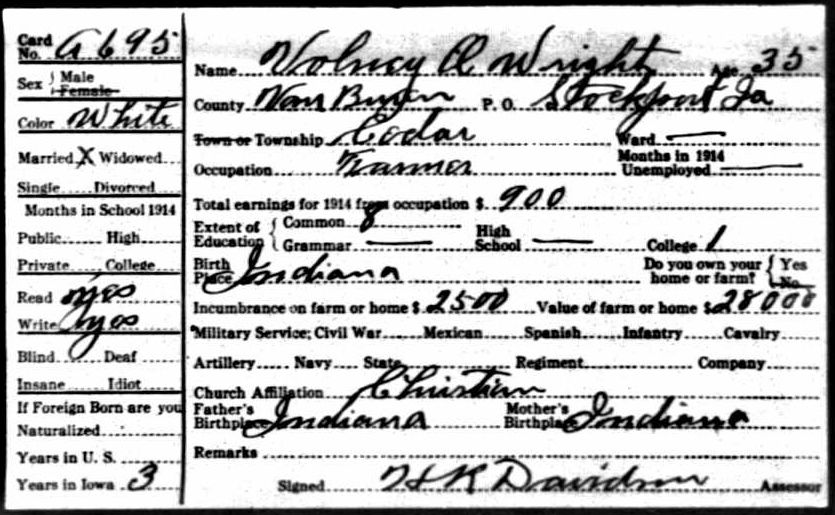 Card No. A 695
Sex { Male
Female
Color White
Married X Widowed
Single Divorced
Months in School 1914
Public High
Private College
Read yes
Write yes
Blind Deaf
Insane Idiot
If Foreign Born are you
Naturalized
Years in U. S.
Years in Iowa 3
Name Volney A Wright Age 35
County Van Buren P. O. Stockport Ia
Town or Township Cedar Ward —
Occupation Farmer Months in 1914 Unemployed —
Total earnings for 1914 from occupation $ 900
Extent of Education { Common 8
Grammar — High School — College 1
Birth Place Indiana Do you own your home or farm? { Yes
No
Incumbrance on farm or home $ 2500 Value of farm or home $ 28000
Military Service; Civil War Mexican Spanish Infantry Cavalry
Artillery Navy State Regiment Company
Church Affiliation Christian
Father's Birthplace Indiana Mother's Birthplace Indiana
Remarks
Signed H K Davidson Assessor